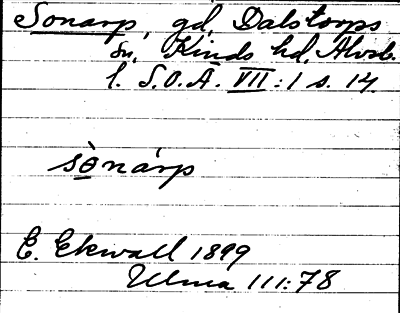 Sonarp, gd, Dalstorps
sn, Kinds hd, Älvsb.
l. S.O.Ä. VII:1 s. 14.
sònárp
E. Ekwall 1899
Ulma 111:78